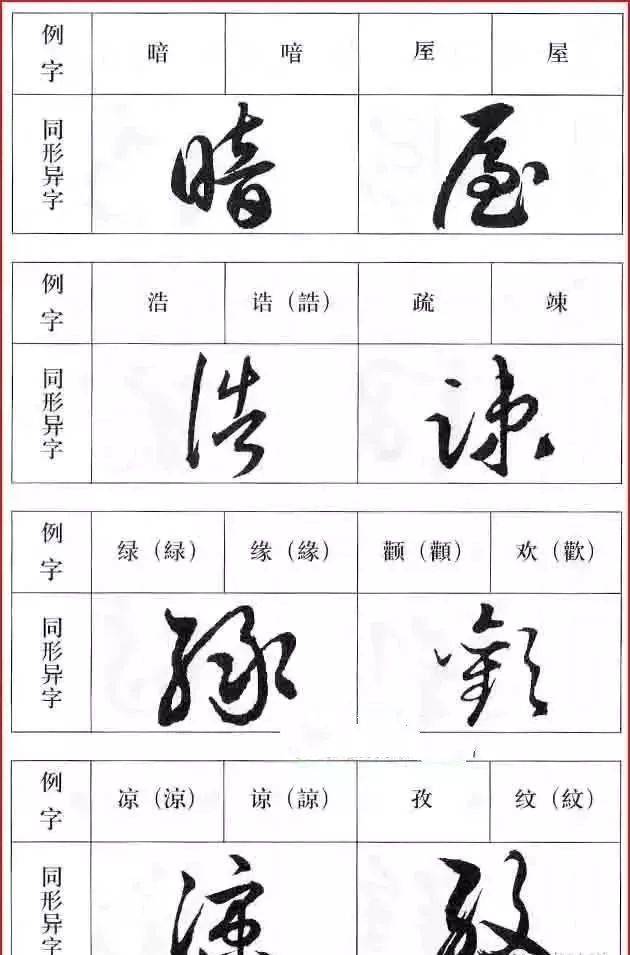 例字 暗 喑 厔 屋
同形异字 暗 屋
例字 浩 诰（誥） 疏 竦
同形异字 浩 疎
例字 绿（緑） 缘（緣） 颧（顴） 欢（歡）
同形异字 緑 歡
例字 凉（涼） 谅（諒） 孜 纹（紋）
同形异字 涼 孜